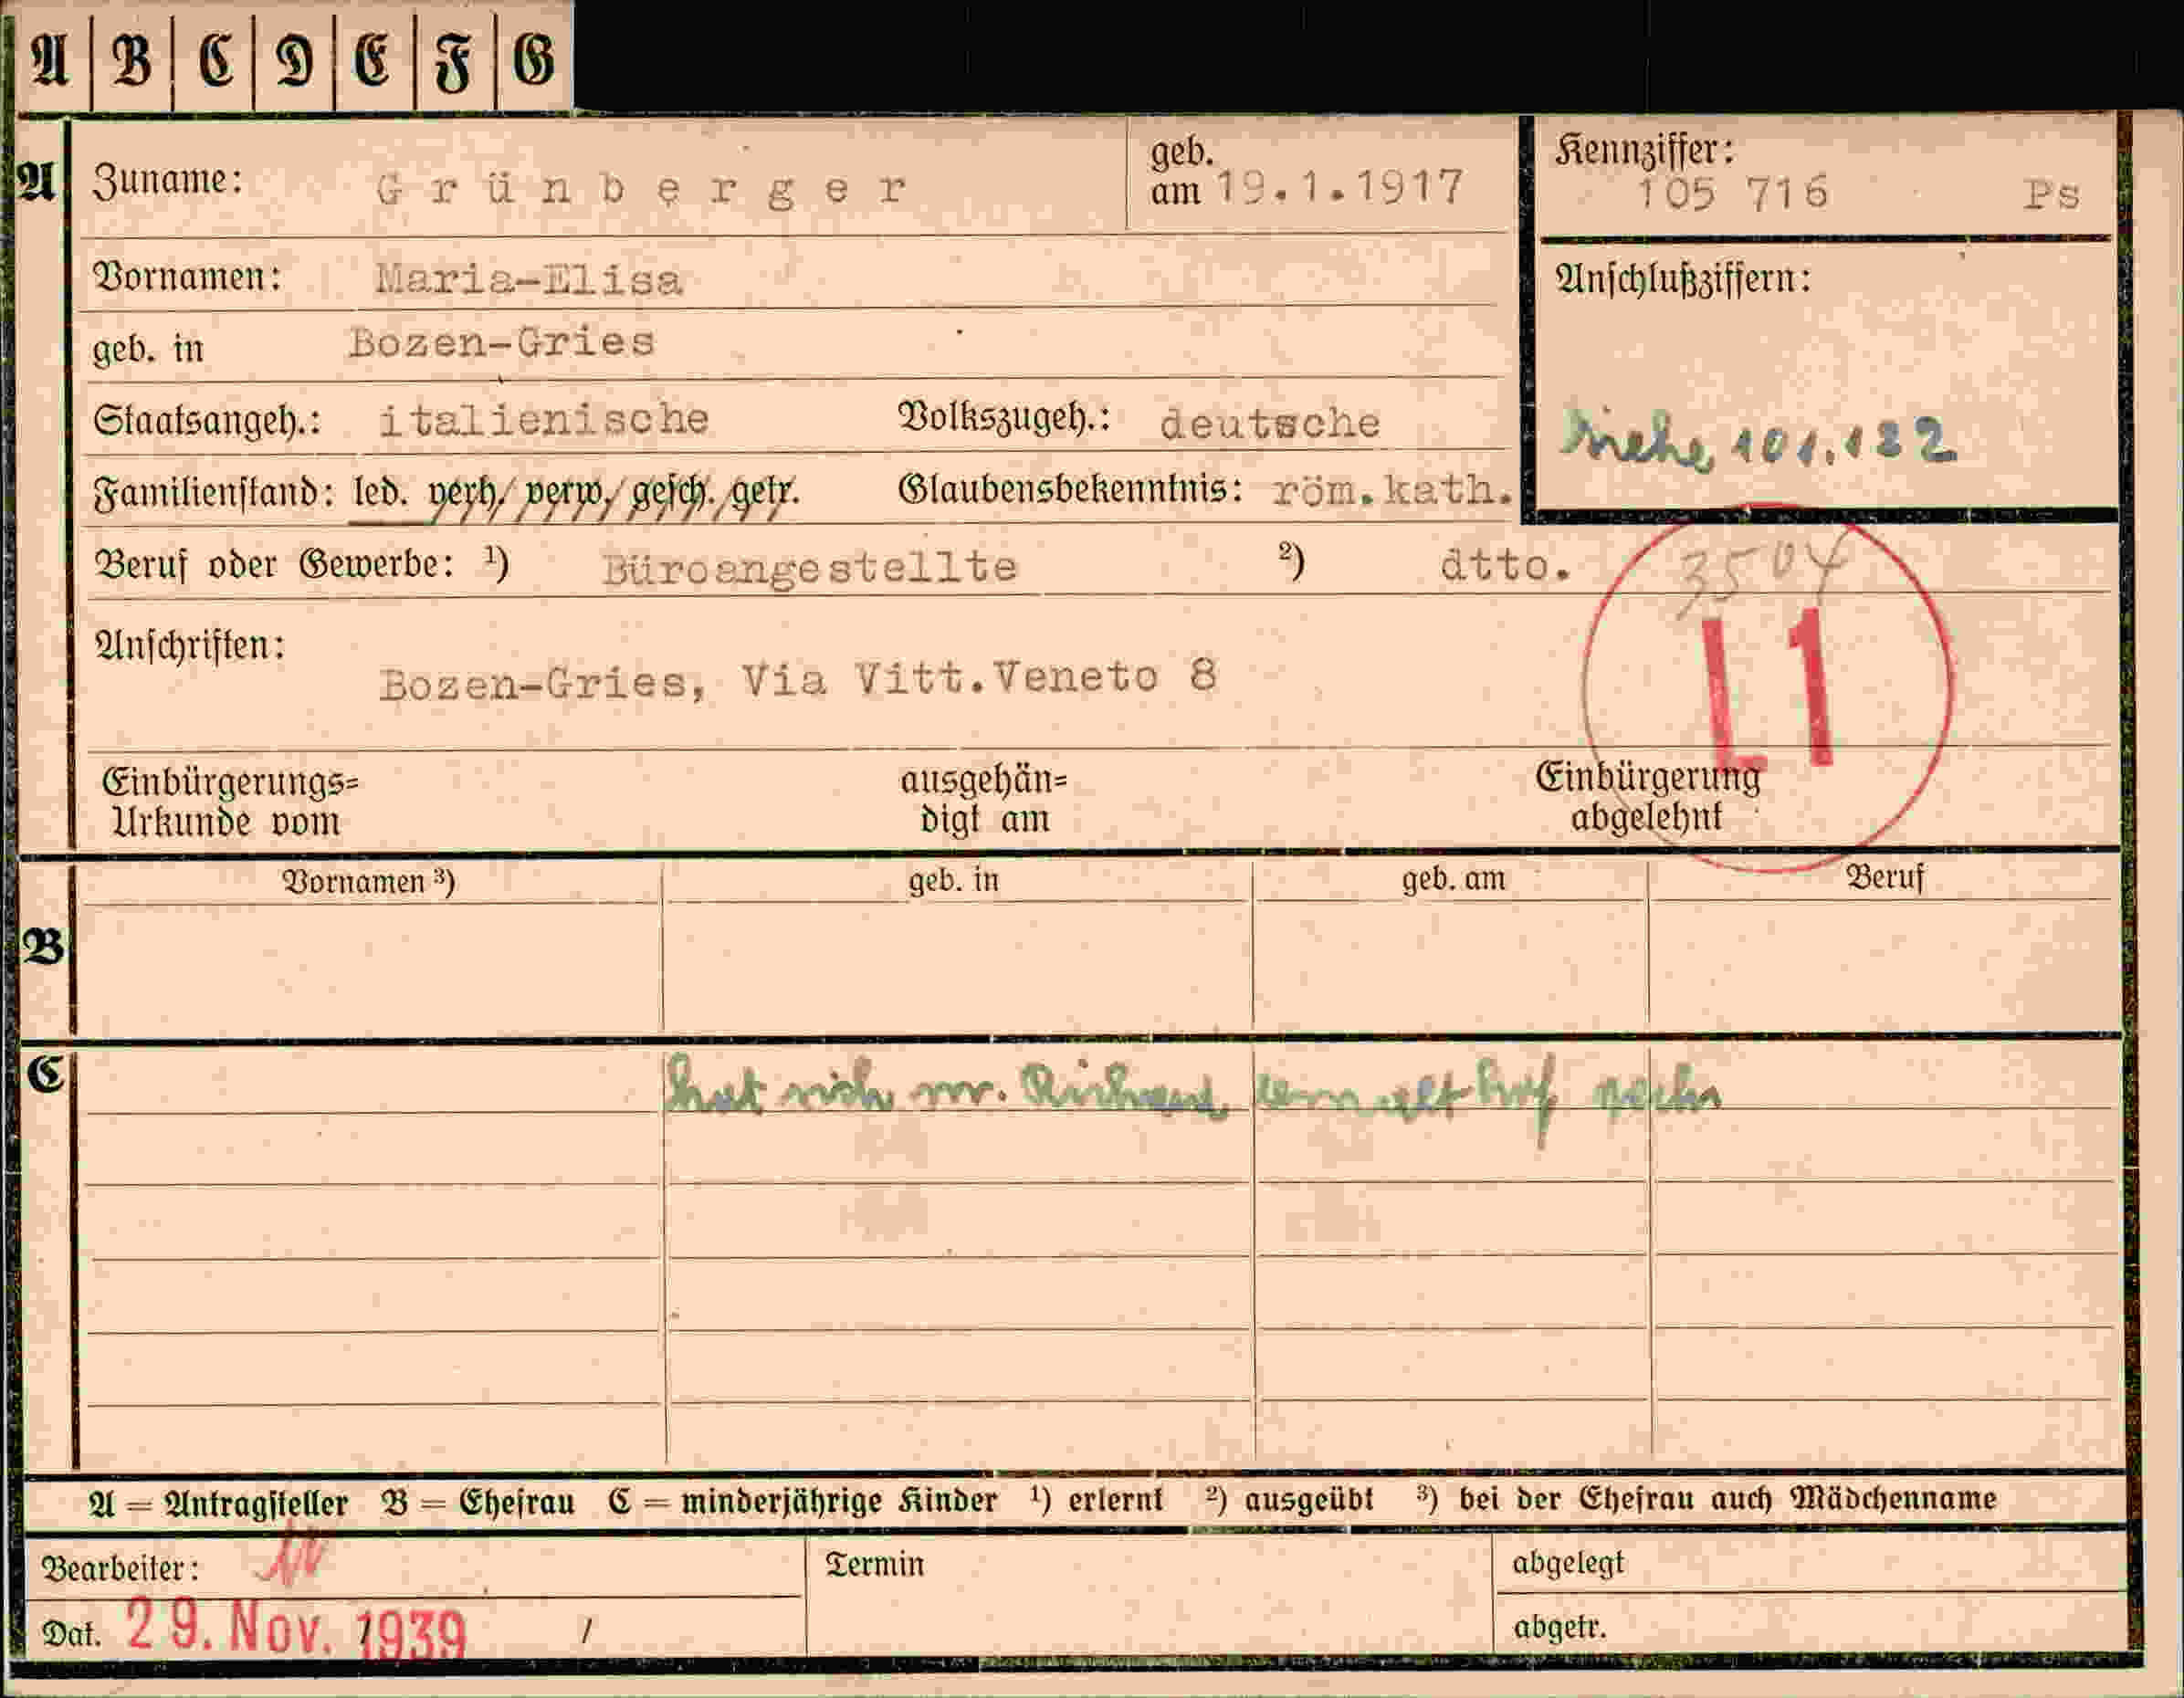 A B C D E F G
A Zuname: Grünberger geb. am 19.1.1917 Kennziffer: 105 716 Ps
Vornamen: Maria-Elisa Anschlußziffern:
geb. in Bozen-Gries
Staatsangeh.: italienische Volkszugeh.: deutsche siehe 101.122
Familienstand: led. verh./verw./gesch./getr. Glaubensbekenntnis: röm.kath.
Beruf oder Gewerbe: ¹) Büroangestellte ²) dtto. 3504
Anschriften: L1
Bozen-Gries, Via Vitt.Veneto 8
Einbürgerungs= ausgehän= Einbürgerung
Urkunde vom digt am abgelehnt
Vornamen ³) geb. in geb. am Beruf
B
C hat sich
A = Antragsteller B = Ehefrau C = minderjährige Kinder ¹) erlernt ²) ausgeübt ³) bei der Ehefrau auch Mädchenname
Bearbeiter: Termin abgelegt
Dat. 29. Nov. 1939 / abgetr.